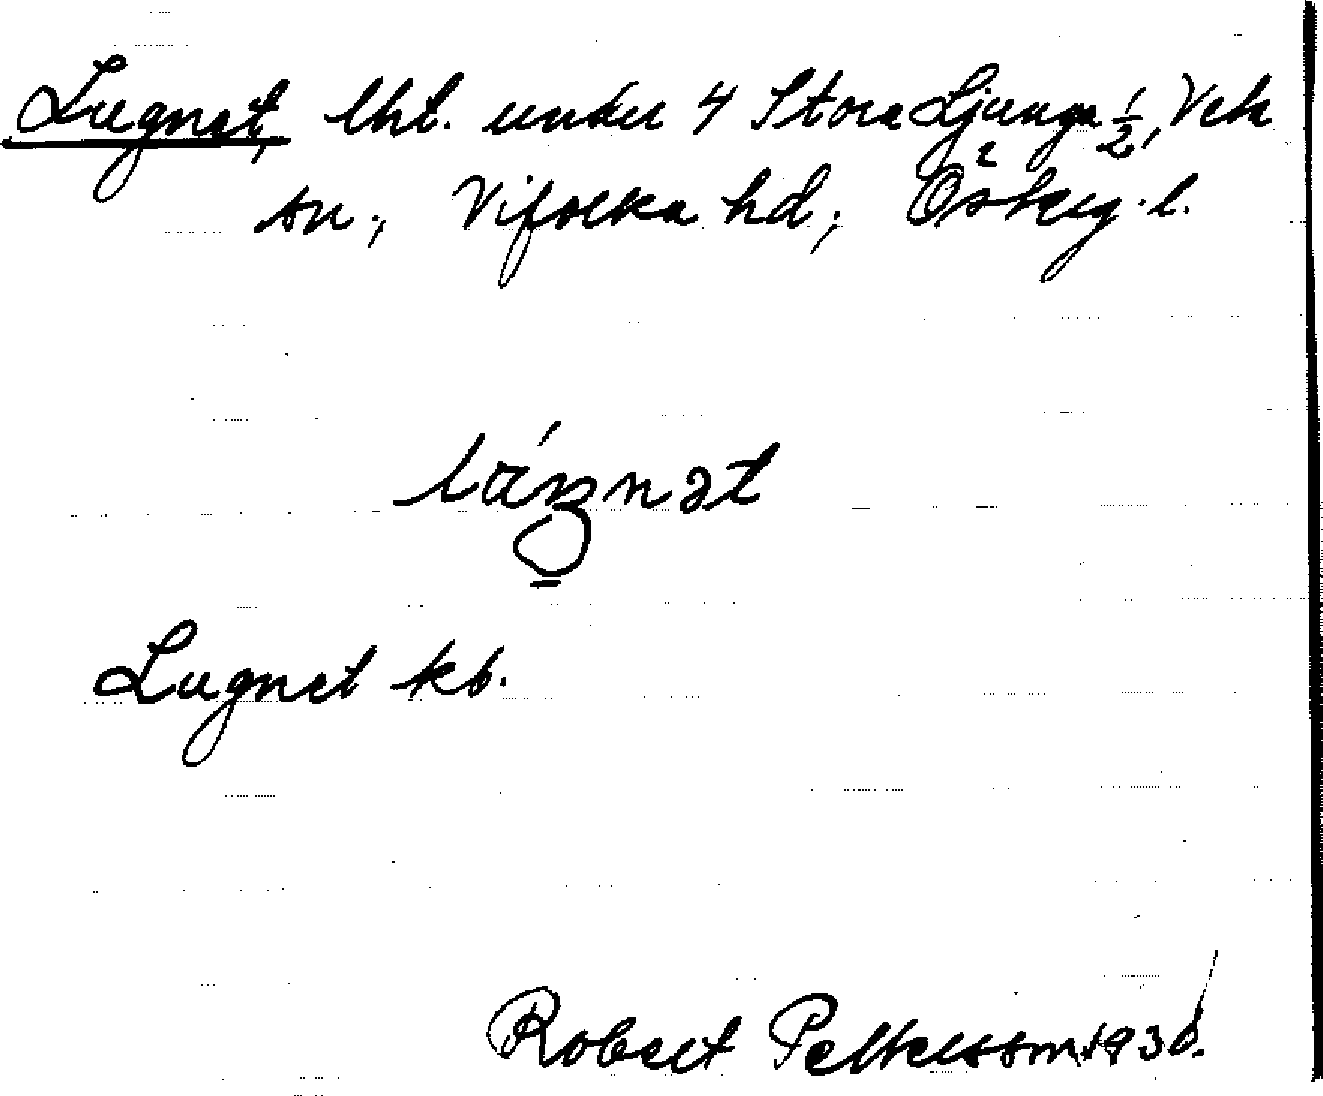 Lugnet, lht. under 4 Stora Ljunga 1/2, Veta
sn., Vifolka hd, Östergl.
Lugnet kb.
Robert Pettersson 1930.